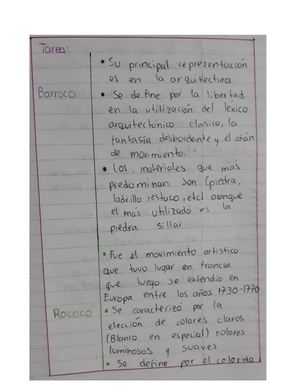 Tarea:
• Su principal representación
es en la arquitectura
Barroco
• Se define por la libertad
en la utilización del léxico
arquitectónico clasico, la
fantasía desbordante y el afán
de movimiento.
• Los materiales que más
predominan son (piedra,
ladrillo, estuco, etc) aunque
el más utilizado es la
piedra sillar
• Fue el movimiento artístico
que tuvo lugar en Francia
que luego se extendio en
Europa entre los años 1730-1770
Rococó
• Se caracterizó por la
elección de colores claros
(Blanco en especial) colores
luminosos y suaves
• Se define por el colorido